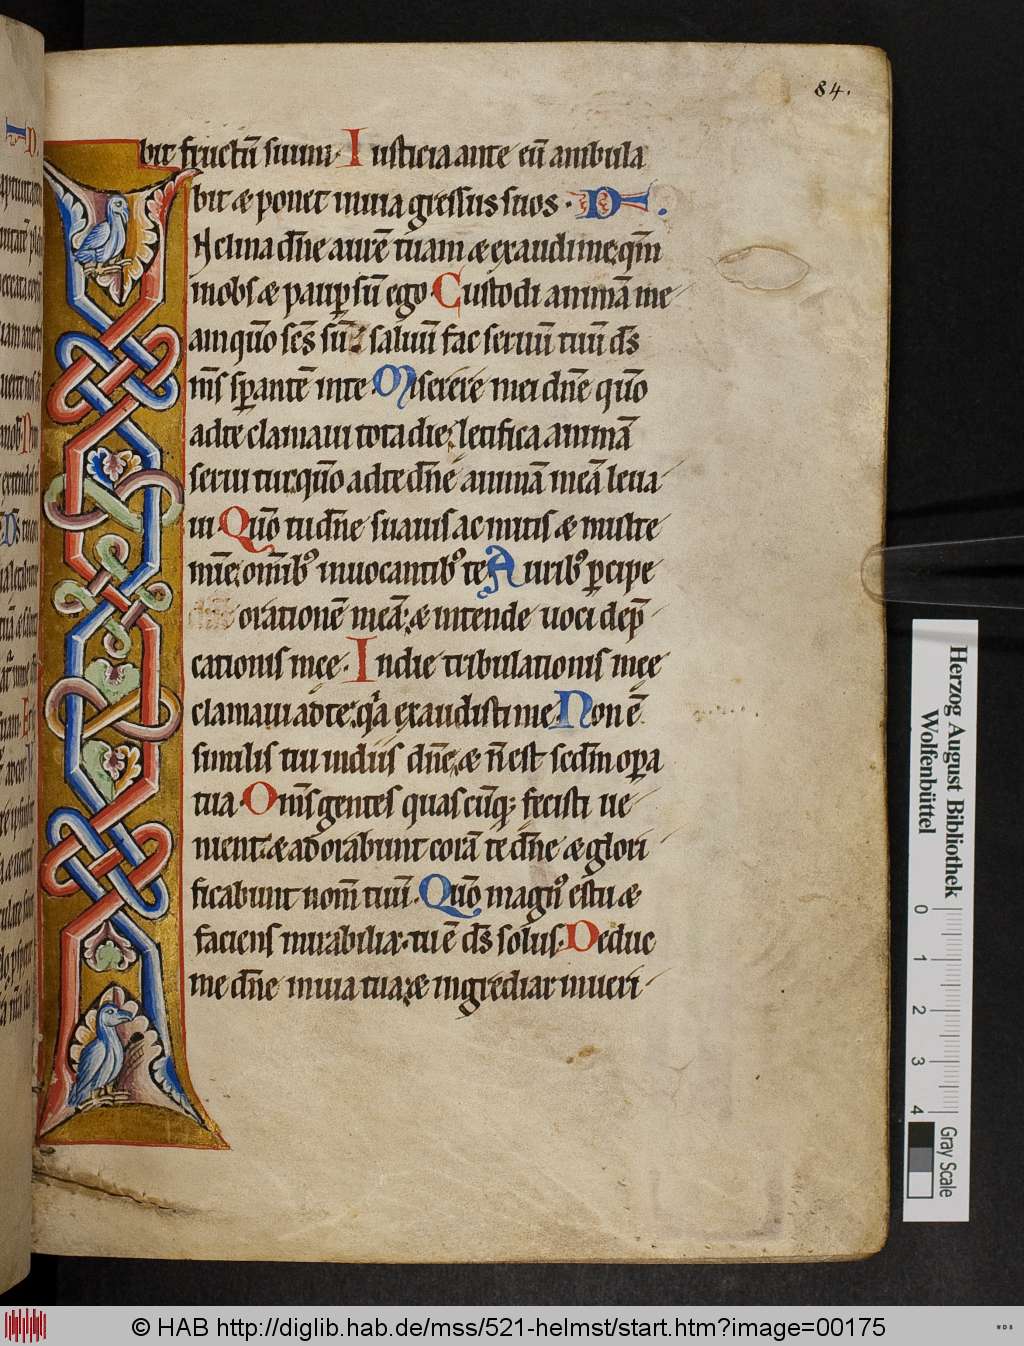 84.
bit fructū suum. Iusticia ante eū ambula
bit & ponet in uia gressus suos.
Inclina dñe aurē tuam & exaudi me, qm̄
inobs & paup sū ego. Custodi animā me
am quō scs sū saluū fac seruū tuū ds
ms sperantē in te. Miserere mei dñe quō
ad te clamaui tota die, letifica animā
serui tui, quō ad te dñe animā meā leua
ui Quō tu dñe suauis ac mitis & multe
mie, omībꝰ inuocantibꝰ te Auribꝰ pcipe
dñe orationē meā, & intende uoci dep
cationis mee. In die tribulationis mee
clamaui ad te, qa exaudisti me, Non ē
similis tui in diis dñe, & n̄ est scdm opa
tua. Om̄s gentes quascūq; fecisti ue
nient & adorabunt corā te dñe & glori
ficabunt nom̄ tuū. Quō magnꝰ es tu &
faciens mirabilia, tu ē ds solus. Deduc
me dñe in uia tua, & ingrediar in ueri
Herzog August Bibliothek
Wolfenbüttel
0 1 2 3 4
Gray Scale
© HAB http://diglib.hab.de/mss/521-helmst/start.htm?image=00175